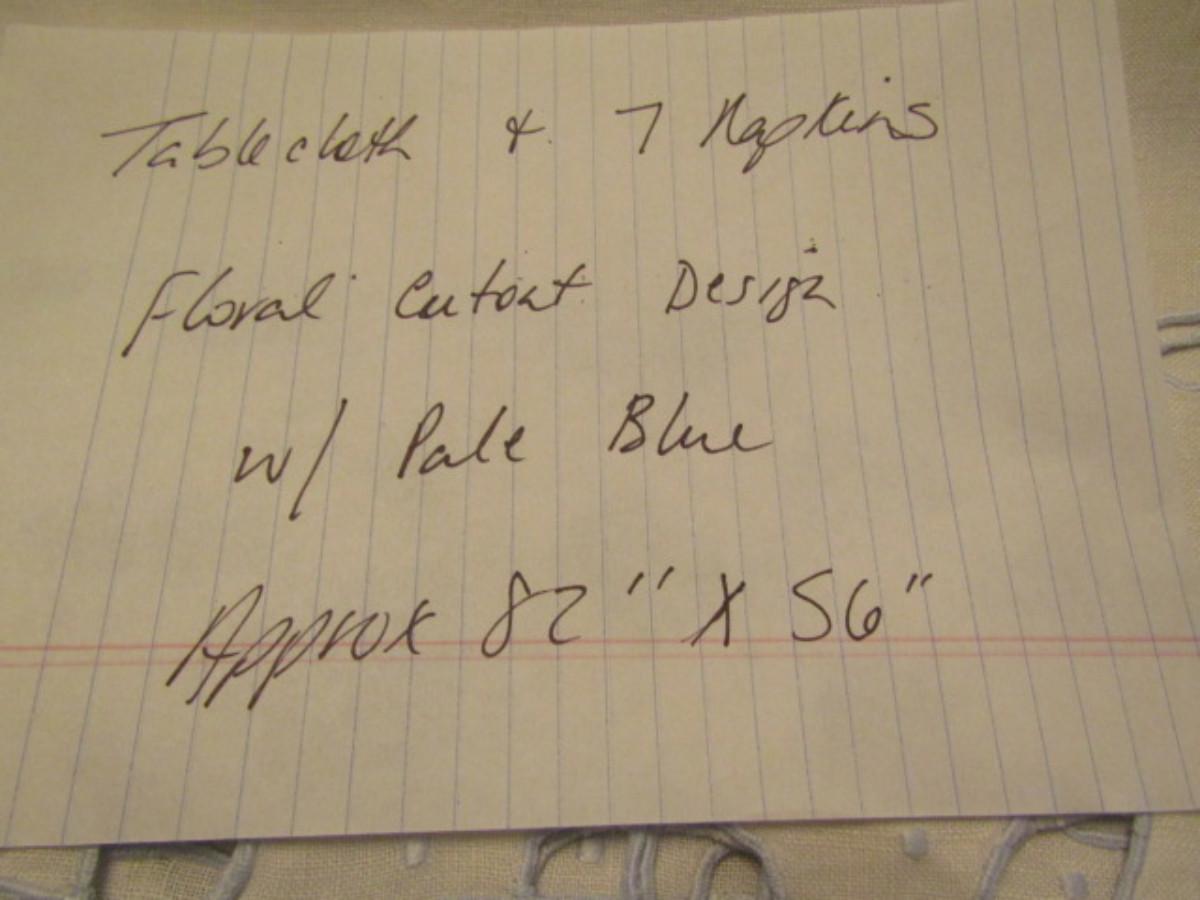 Tablecloth & 7 Napkins
Floral Cutout Design
w/ Pale Blue
Approx 82" X 56"